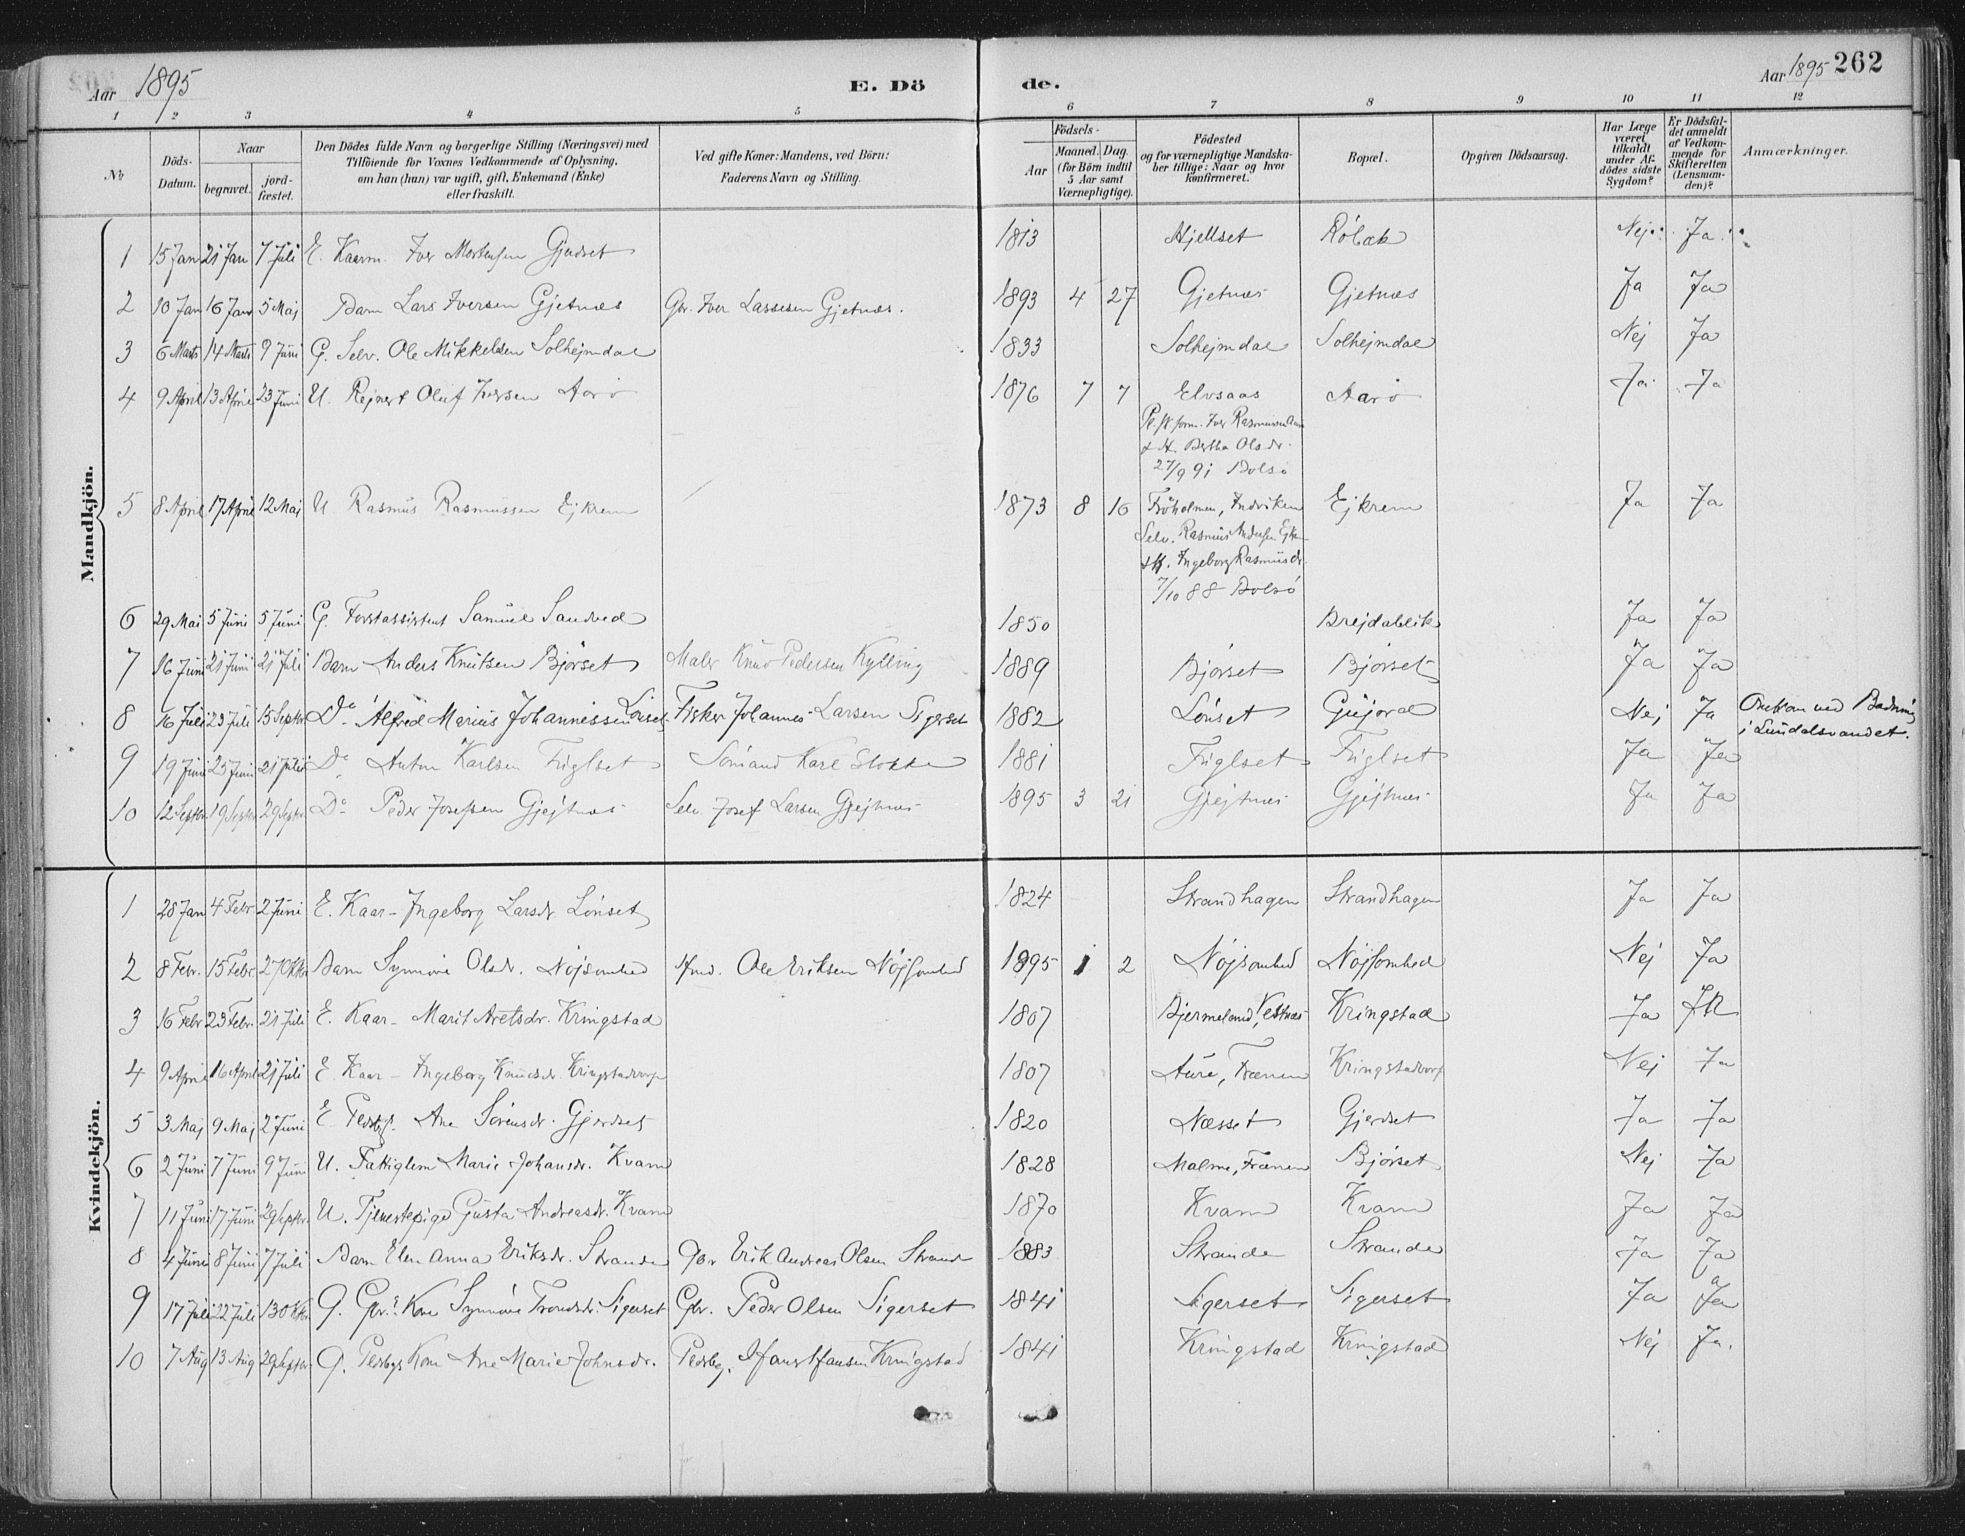 Aar 1895
E. Dö
de.
Aar 1895 262
1 2 3 4 5 6 7 8 9 10 11 12
No
Döds-Datum.
Naar
begravet.
jord-fæstet.
Den Dödes fulde Navn og borgerlige Stilling (Næringsvei) med
Tilföiende for Voxnes Vedkommende af Oplysning,
om han (hun) var ugift, gift, Enkemand (Enke)
eller fraskilt.
Ved gifte Koner: Mandens, ved Börn:
Faderens Navn og Stilling.
Födsels-
Aar
Maaned. Dag.
(for Börn indtil
5 Aar samt
Værnepligtige).
Födested
og for værnepligtige Mandska-
ber tillige: Naar og hvor
konfirmeret.
Bopæl.
Opgiven Dödsaarsag.
Har Læge
været
tilkaldt
under Af-
dödes sidste
Sygdom?
Er Dödsfal-
det anmeldt
af Vedkom-
mende for
Skifteretten
(Lensman-
den)?
Anmærkninger.
Mandkjön.
1 15 Jan 21 Jan 7 Juli E. Kaarm. Iver Mortensen Gjerdset 1813 Hjellset Röbæk Nej Ja
2 10 Jan 16 Jan 5 Maj Barn Lars Iversen Gjetnæs Gbr. Iver Larssen Gjetnæs. 1893 4 27 Gjetnæs Gjetnæs Ja Ja
3 6 Marts 14 Marts 9 Juni G. Selv. Ole Mikkelsen Solhejmdal 1833 Solhejmdal Solhejmdal Nej Ja
4 9 April 13 April 23 Juni U. Rejnert Oluf Iversen Aarö 1876 7 7 Elvsaas Aarö Ja Ja
Iver Rasmussen
& H. Bertha Olsdr.
27/9 91 Bolsö
5 8 April 17 April 12 Maj U Rasmus Rasmussen Ejkrem 1873 8 16 Ejkrem Ja Ja
Selv. Rasmus Andersen
Ingeborg Rasmusdr.
7/10 88 Bolsö
6 29 Maj 5 Juni 5 Juni G. Forstassistent Samuel Sandved 1850 Brejdablik Ja Ja
7 16 Juni 21 Juni 21 Juli Barn Anders Knutsen Bjørset Maler Knud Pedersen Kylling 1889 Bjørset Bjørset Ja Ja
8 16 Juli 23 Juli 15 Septbr Do Alfred Marius Johannessen Lönset Fisker Johannes Larsen Sigerset 1882 Lönset Gujord Nej Ja ved Badning
i Lundalsvandet.
9 19 Juni 25 Juni 21 Juli Do Anton Karlsen Fuglset Sömand Karl Stokke 1881 Fuglset Fuglset Ja Ja
10 12 Septbr 19 Septbr 29 Septbr Do Peder Josefsen Gjejtnæs Selv. Josef Larsen Gjejtnæs 1895 3 21 Gjejtnæs Gjejtnæs Ja Ja
Kvindekjön.
1 28 Jan 4 Febr 2 Juni E. Kaar- Ingeborg Larsdr. Lönset 1824 Strandhagen Strandhagen Ja Ja
2 8 Febr. 15 Febr 27 Oktbr Barn Synnöve Olsdr. Nöjsomhed Ole Eriksen Nöjsomhed 1895 1 2 Nöjsomhed Nöjsomhed Nej Ja
3 16 Febr 23 Febr. 21 Juli E. Kaar- Marit Aretsdr. Kringstad 1807 Bjermeland, Vestnæs Kringstad Ja Ja
4 9 April 16 April 21 Juli E. Kaar- Ingeborg Knudsdr. Kringstadvorp 1807 Aure, Frænen Kringstadvorp Nej Ja
5 3 Maj 9 Maj 2 Juni E Pladsbgr. Ane Sörensdr. Gjerdset 1820 Næsset Gjerdset Ja Ja
6 2 Juni 7 Juni 9 Juni U. Fattiglem Marie Johansdr. Kvam 1828 Malme, Frænen Bjørset Nej Ja
7 11 Juni 17 Juni 29 Septbr. U. Tjenestepige Gusta Andreasdr. Kvam 1870 Kvam Kvam Ja Ja
8 4 Juni 8 Juni 7 Juli Barn Elen Anna Eriksdr. Strande Gbr Erik Andreas Olsen Strand 1883 Strande Strande Ja Ja
9 17 Juli 22 Juli 13 Oktbr. G. Gbr. Kone Synnöve Trondsdr. Sigerset Gbr. Peder Olsen Sigerset 1841 Sigerset Sigerset Ja Ja
10 7 Aug 13 Aug 29 Septbr G. Pladsbgr Kone Ane Marie Johnsdr. Pladsbg. Hans Hansen Kringstad 1841 Kringstad Kringstad Nej Ja.